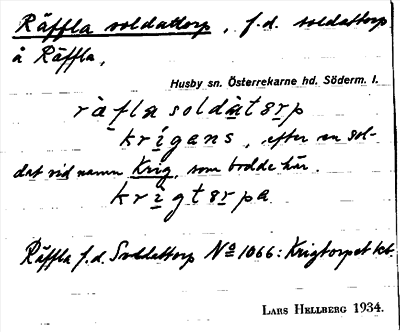 Räffla soldattorp, f.d. soldattorp
å Räffla,
Husby sn. Österrekarne hd. Söderm. l.
räflasoldàtərp
krigans, efter en sol-
dat vid namn Krig, som bodde här.
krigtərpa
Räffla f.d. Soldattorp No 1066: Krigtorpet kt.
LARS HELLBERG 1934.